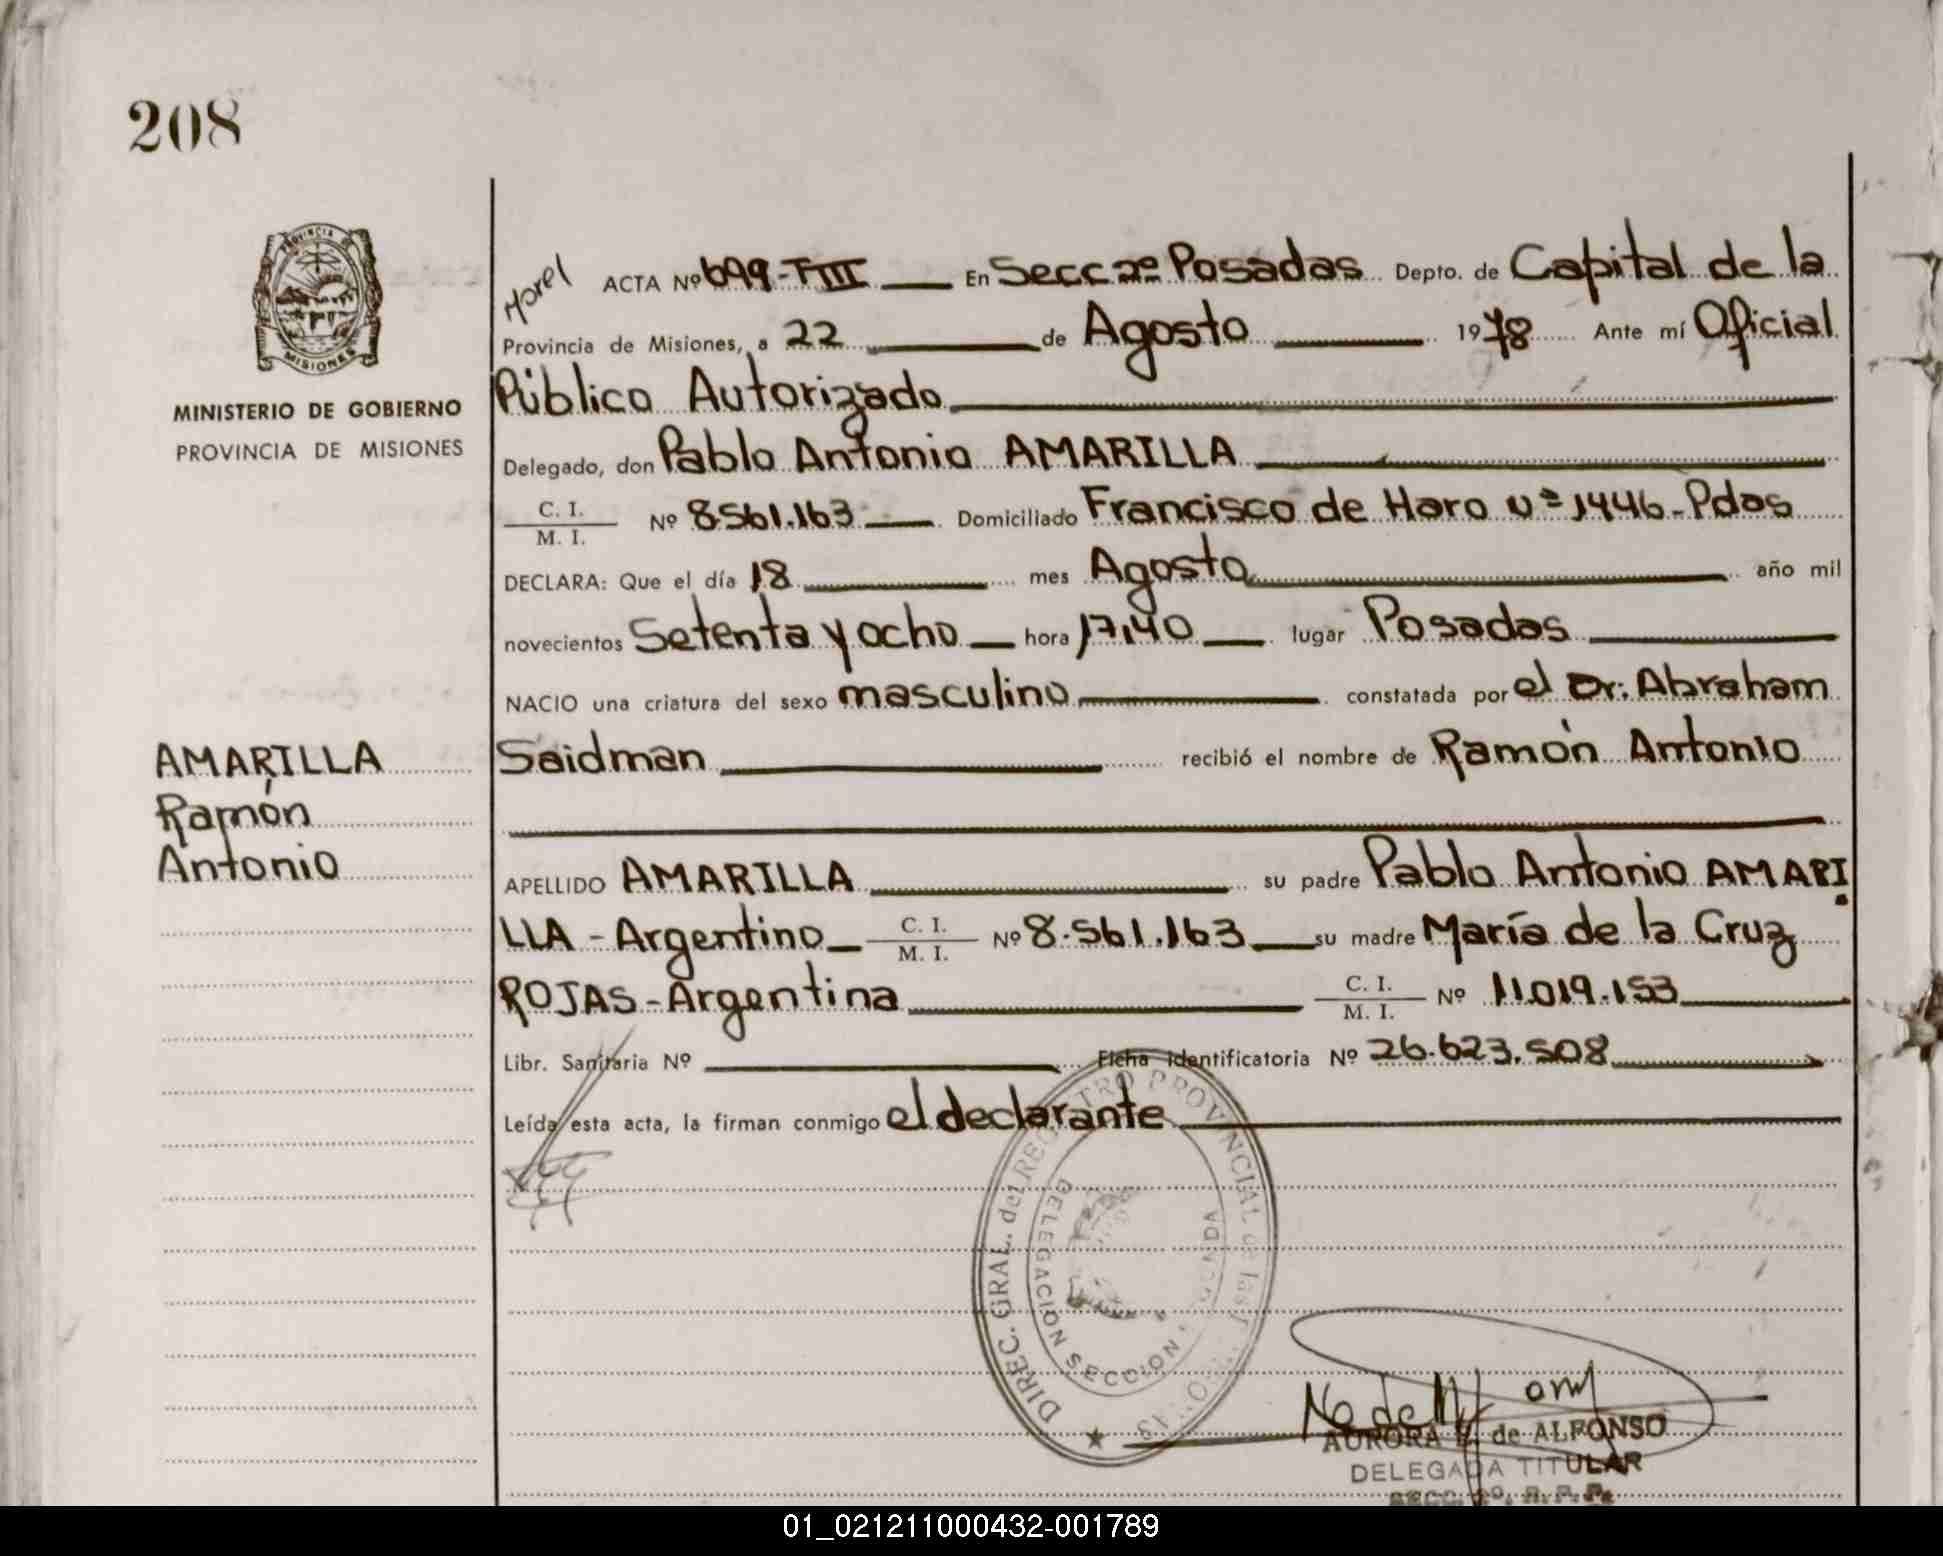 208
PROVINCIA DE
MISIONES
MINISTERIO DE GOBIERNO
PROVINCIA DE MISIONES
AMARILLA
Ramón
Antonio
Morel ACTA Nº 699-TIII En Secc 2º Posadas Depto. de Capital de la
Provincia de Misiones, a 22 de Agosto 1978 Ante mí Oficial
Público Autorizado
Delegado, don Pablo Antonio AMARILLA
C. I.
M. I. Nº 8.561.163 Domiciliado Francisco de Haro nº 1446-Pdas
DECLARA: Que el día 18 mes Agosto año mil
novecientos Setenta y ocho hora 17,40 lugar Posadas
NACIO una criatura del sexo masculino constatada por el Dr: Abraham
Saidman recibió el nombre de Ramón Antonio
APELLIDO AMARILLA su padre Pablo Antonio AMARI
LLA - Argentino C. I. M. I. Nº 8.561.163 su madre María de la Cruz
ROJAS - Argentina C. I. M. I. Nº 11.019.153
Libr. Sanitaria Nº Ficha Identificatoria Nº 26.623.508
Leída esta acta, la firman conmigo el declarante
DIREC. GRAL. del REGISTRO PROVINCIAL de las
DELEGACION SECCION
AURORA de ALFONSO
DELEGADA TITULAR
SECC. 2º. R. P. P.
01_021211000432-001789